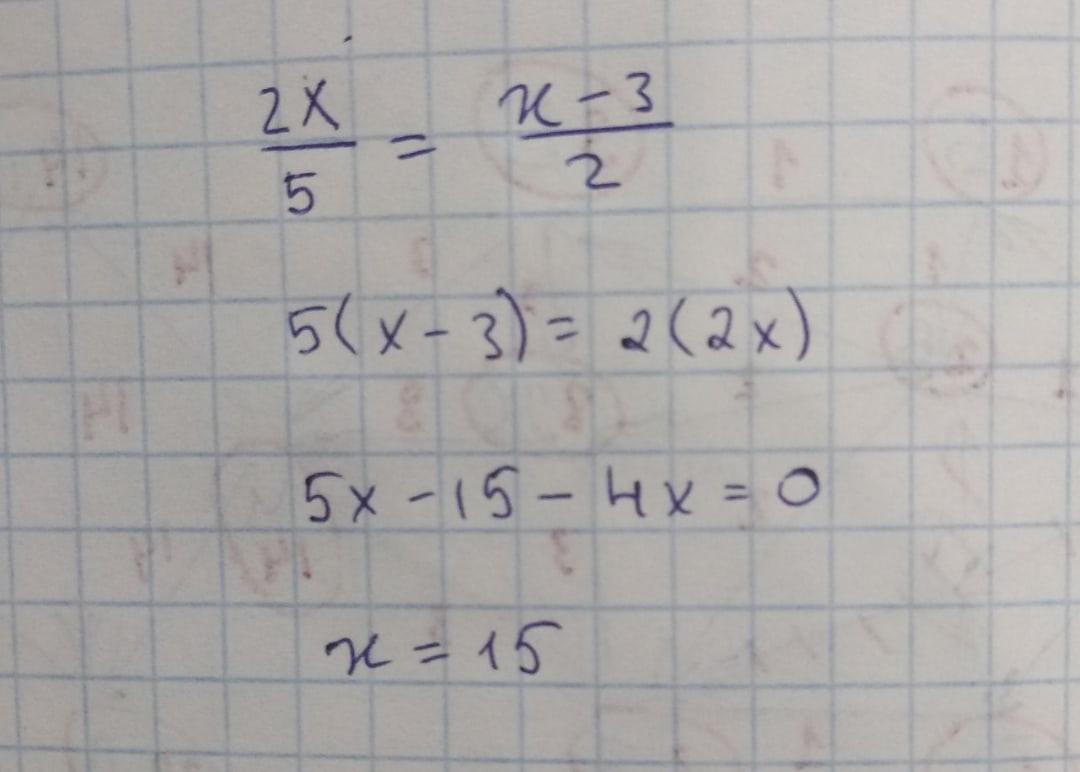 2x/5 = x-3/2
5(x-3)= 2(2x)
5x-15-4x=0
x=15